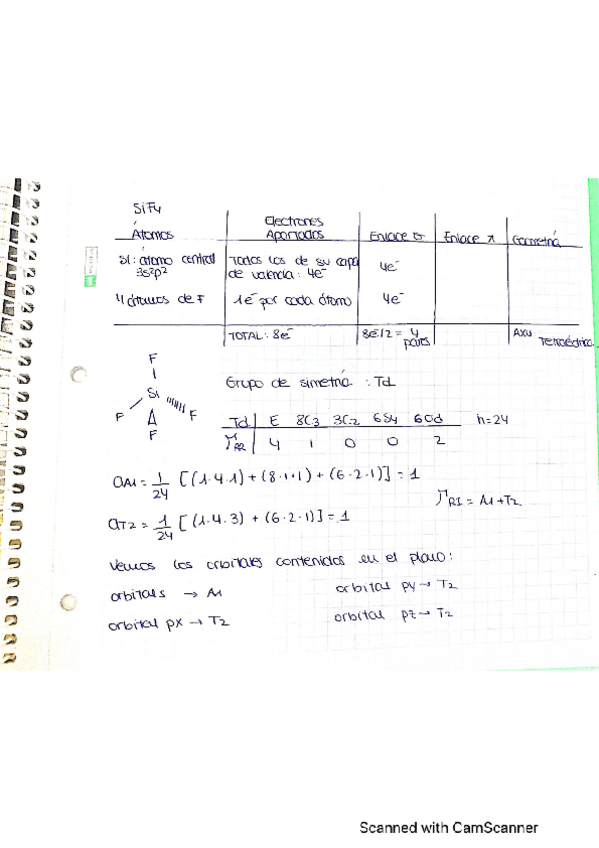 SiF4
Átomos | Electrones Aportados | Enlace σ | Enlace π | Geometría
Si: átomo central 3s²p² | Todos los de su capa de valencia: 4e⁻ | 4e⁻
4 átomos de F | 1e⁻ por cada átomo | 4e⁻
TOTAL: 8e⁻ | 8e⁻/2 = 4 pares | AX4 Tetraédrica
F
Si
F F
F
Grupo de simetría : Td
Td | E 8C3 3C2 6S4 6σd h=24
4 1 0 0 2
aA1 = 1/24 [(1·4·1)+(8·1·1)+(6·2·1)] = 1
ΓRI = A1+T2
aT2 = 1/24 [(1·4·3)+(6·2·1)] = 1
Vemos los orbitales contenidos en el plano:
orbital s → A1
orbital py → T2
orbital px → T2
orbital pz → T2
Scanned with CamScanner